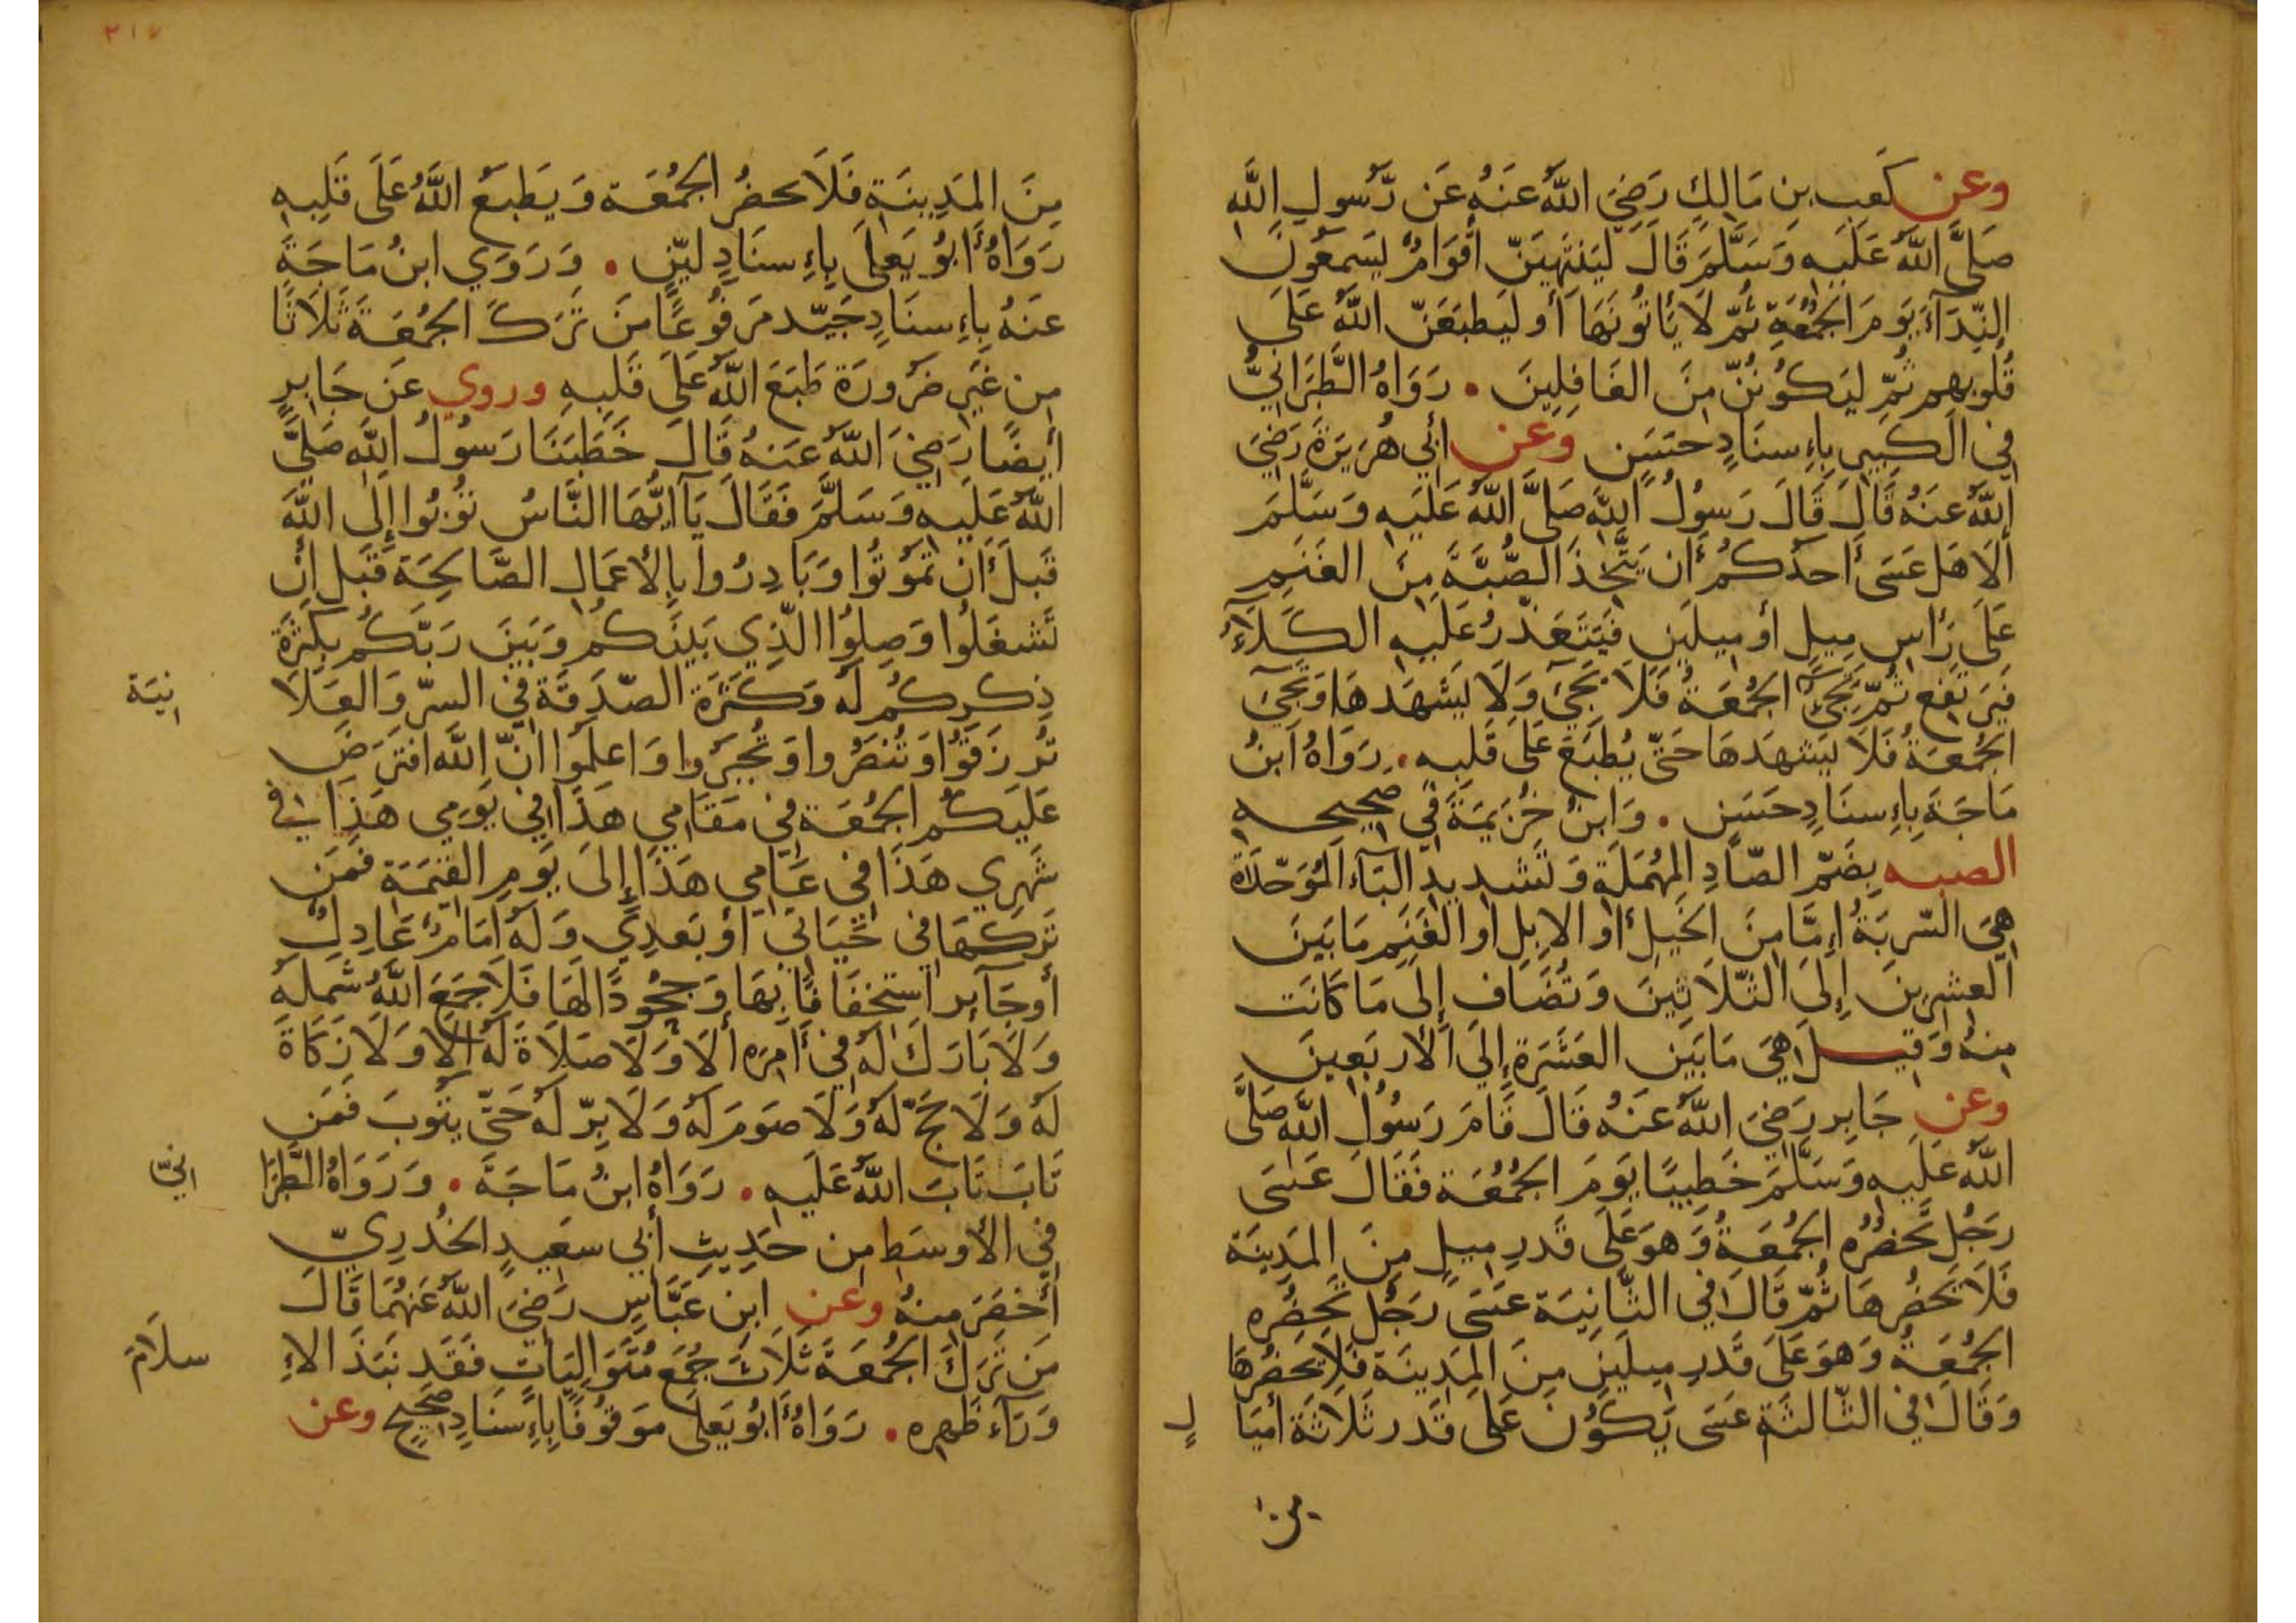 وعن كعب بن مالك رضي الله عنه عن رسول الله
صلى الله عليه وسلم قال لينتهين أقوام ليسمعون
النداء يوم الجمعة ثم لا يأتونها أو ليطبعن الله على
قلوبهم ثم ليكونن من الغافلين . رواه الطبراني
في الكبير بإسناد حسن وعن أبي هريرة رضي
الله عنه قال قال رسول الله صلى الله عليه وسلم
ألا هل عسى أحدكم أن يتخذ الصبة من الغنم
على رأس ميل أو ميلين فيتعذر عليه الكلاء
فيرتفع ثم تجيء الجمعة فلا يجيء ولا يشهدها وتجيء
الجمعة فلا يشهدها حتى يطبع على قلبه . رواه ابن
ماجة بإسناد حسن . وابن خزيمة في صحيحه
الصبه بضم الصاد المهملة وتشديد الباء الموحدة
هي السربة إما من الخيل أو الابل أو الغنم ما بين
العشرين إلى الثلاثين وتضاف إلى ما كانت
منه وقيل هي ما بين العشرة إلى الأربعين
وعن جابر رضي الله عنه قال قام رسول الله صلى
الله عليه وسلم خطيبا يوم الجمعة فقال عسى
رجل تحضره الجمعة وهو على قدر ميل من المدينة
فلا يحضرها ثم قال في الثانية عسى رجل تحضره
الجمعة وهو على قدر ميلين من المدينة فلا يحضرها
وقال في الثالثة عسى يكون على قدر ثلاثة أميا
ل
من
٢١٧
من المدينة فلا يحضر الجمعة ويطبع الله على قلبه
رواه أبو يعلى بإسناد لين . وروي ابن ماجة
عنه بإسناد جيد مرفوعا من ترك الجمعة ثلاثا
من غير ضرورة طبع الله على قلبه وروي عن جابر
أيضا رضي الله عنه قال خطبنا رسول الله صلى
الله عليه وسلم فقال يآ ايها الناس توبوا إلى الله
قبل أن تموتوا وبادروا بالأعمال الصالحة قبل ان
تشغلوا وصلوا الذي بينكم وبين ربكم بكثرة
ذكركم له وكثرة الصدقة في السر والعلا
نية
ترزقوا وتنصروا وتجبروا واعلموا ان الله افترض
عليكم الجمعة في مقامي هذا في يومي هذا في
شهري هذا في عامي هذا إلى يوم القيمة فمن
تركها في حياتي أو بعدي وله إمام عادل
أو جآير استخفافا بها وجحودا لها فلا جمع الله شمله
ولا بارك له في أمره ألا ولا صلاة له ألا ولا زكاة
له ولا حج له ولا صوم له ولا بر له حتى يتوب فمن
تاب تاب الله عليه . رواه ابن ماجة . ورواه الطبرا
اني
في الأوسط من حديث أبي سعيد الخدري
أخصر منه وعن ابن عباس رضي الله عنهما قال
من ترك الجمعة ثلاث جمع متواليات فقد نبذ الاإ
سلام
ورآء ظهره . رواه أبو يعلى موقوفا بإسناد صحيح وعن